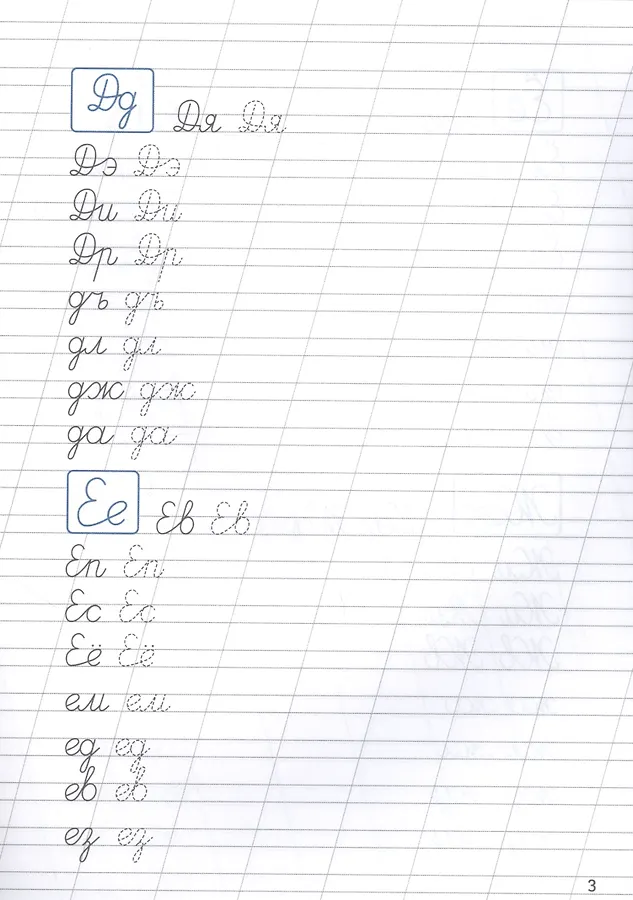 Дд Дя Дя
Дэ Дэ
Ди Ди
Др Др
дъ дъ
дл дл
дж дж
да да
Ее Ев Ев
Еп Еп
Ес Ес
Её Её
ем ем
ед ед
ев ев
ез ез
3